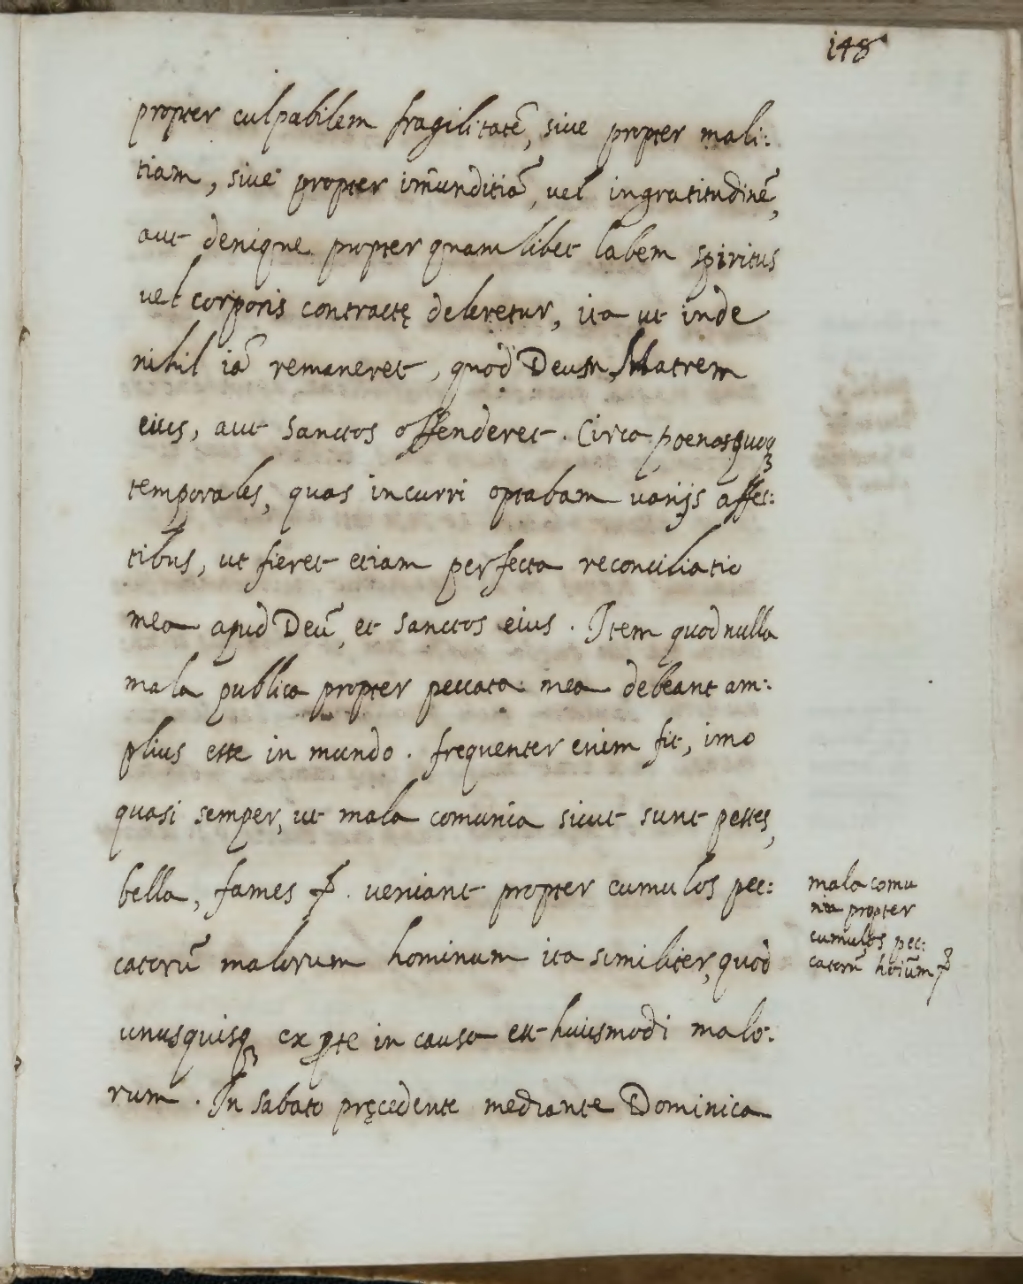 148
propter culpabilem fragilitatē, siue propter mali:
tiam, siue propter im̄unditiā, uel ingratitudinē,
aut denique propter quamlibet labem spiritus
uel corporis contractę deleretur, ita ut inde
nihil iā remaneret, quod Deum Matrem
eius, aut Sanctos offenderet. Circa poenas quoqꝫ
temporales, quas incurri optabam uarijs affec:
tibus, ut fieret etiam perfecta reconciliatio
mea apud Deū, et sanctos eius. Item quod nulla
mala publica propter peccata mea debeant am:
plius esse in mundo. frequenter enim fit, imo
quasi semper, ut mala comunia sicut sunt pestes,
bella, fames &. ueniant propter cumulos pec:
catorū malorum hominum ita similiter, quòd
unusquisqꝫ ex pte in causa est huiusmodi malo:
rum. In Sabato pręcedente mediante Dominica
mala comu
nia propter
cumulos pec:
catorū hoīum &